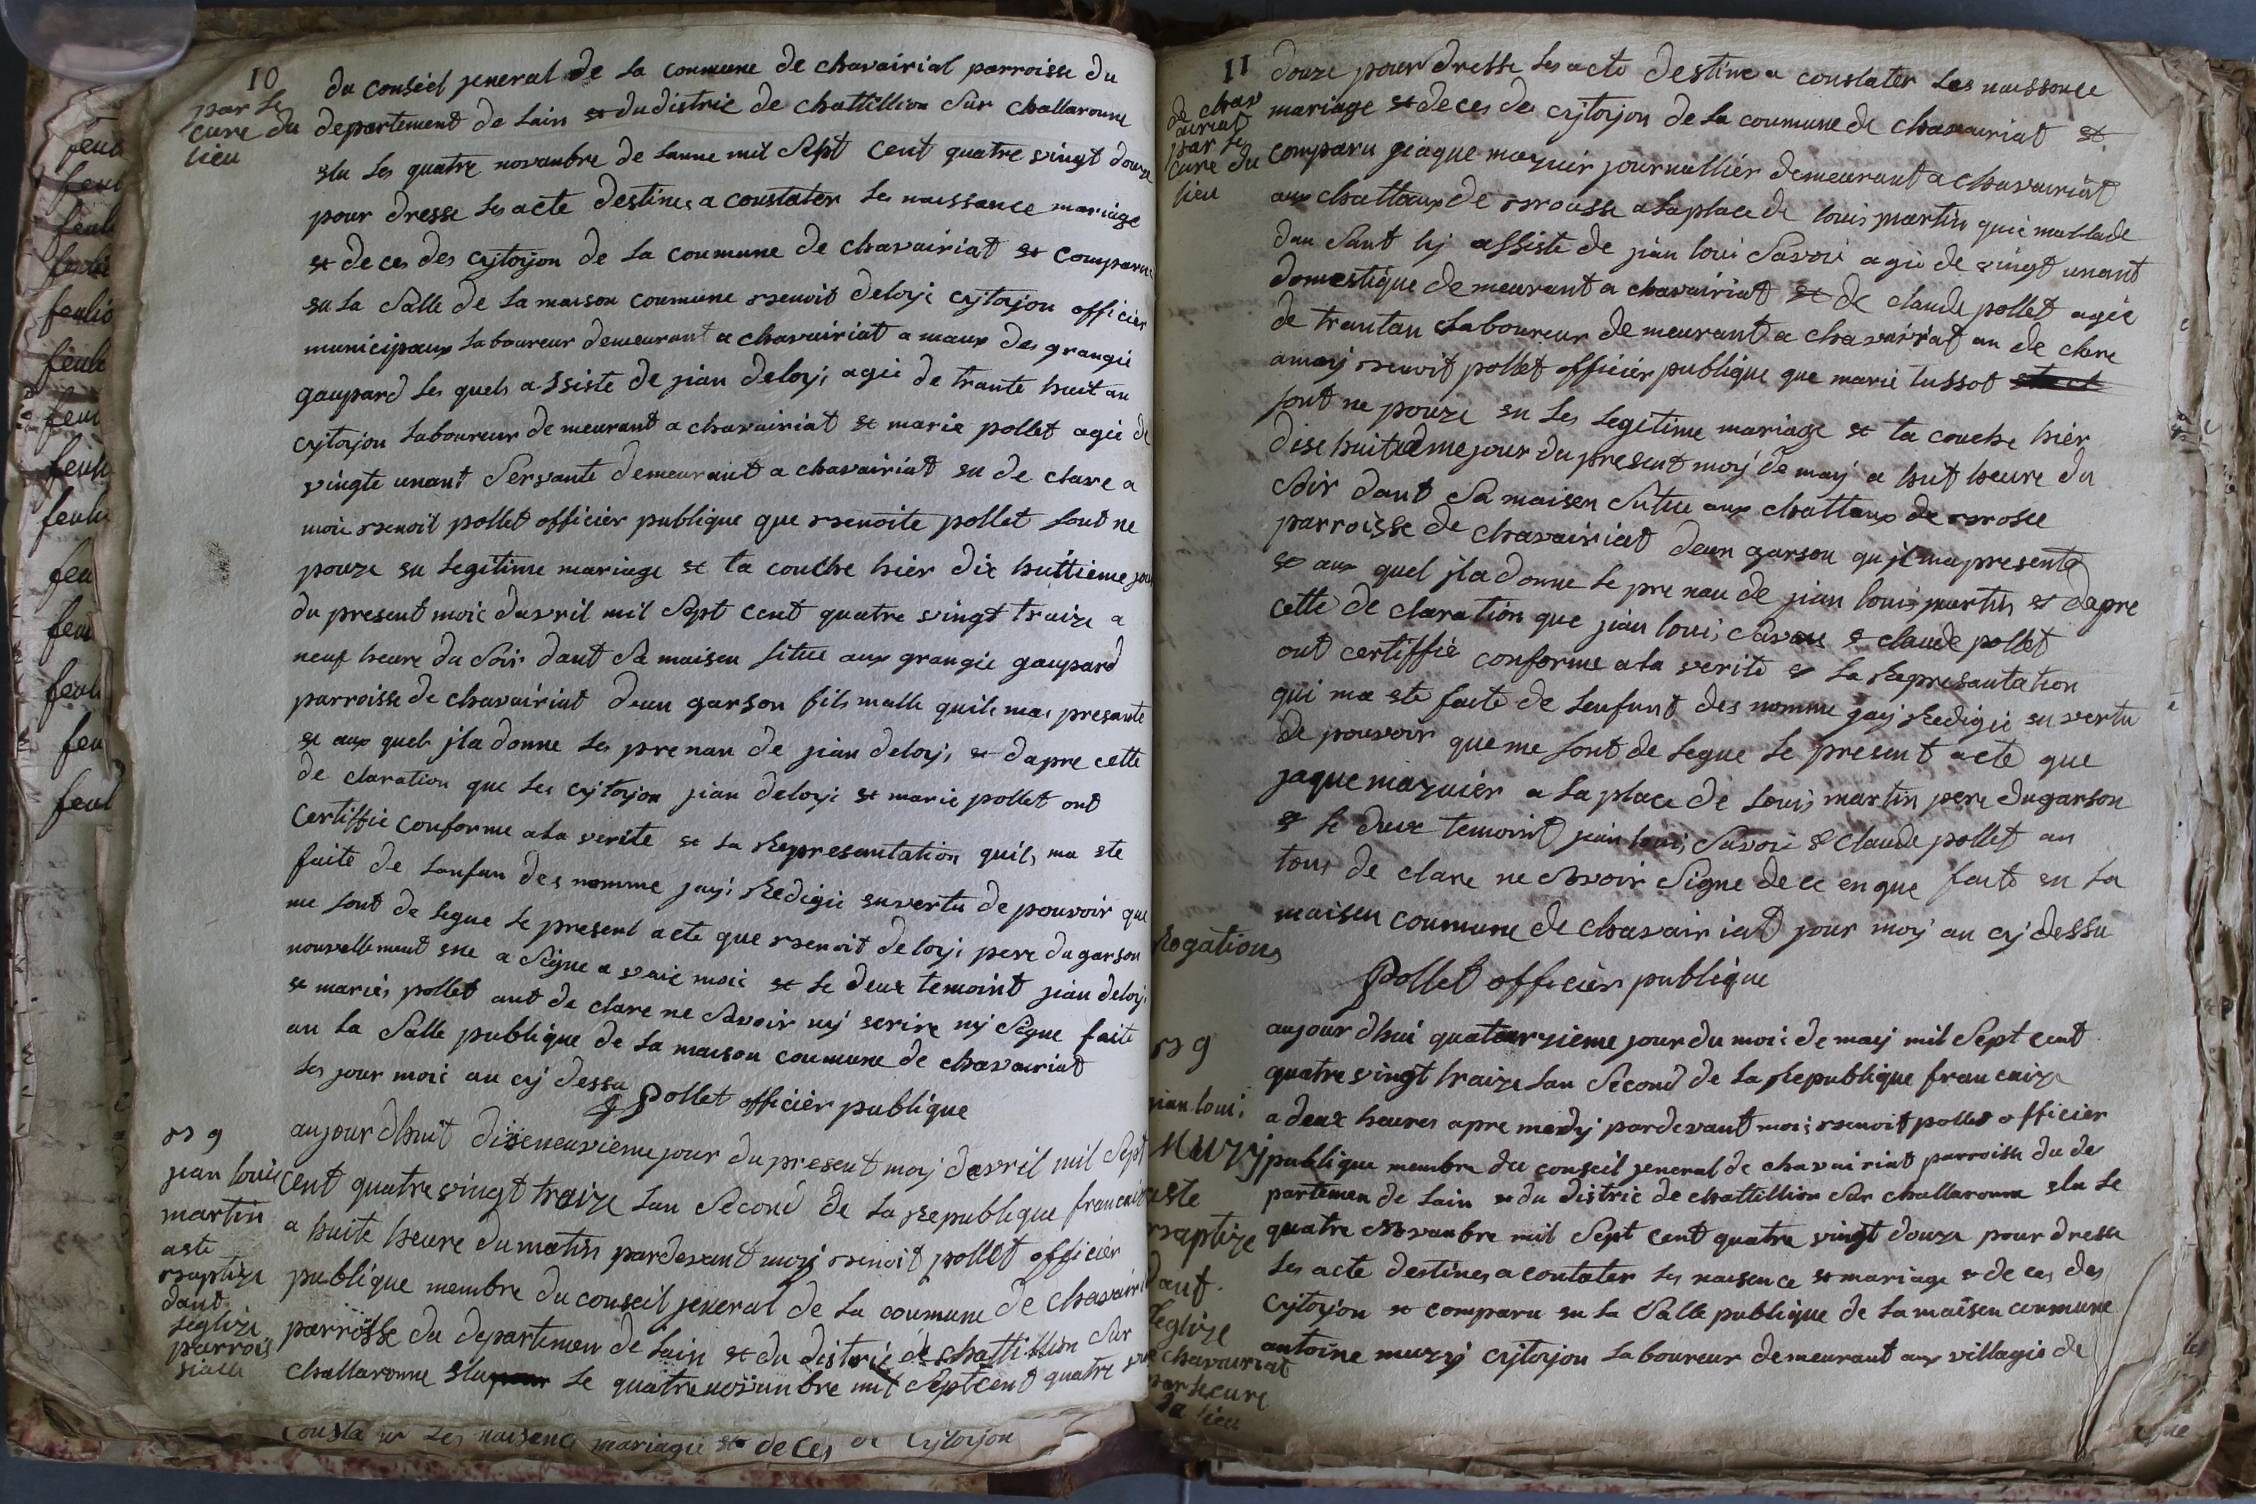 10
par le
cure du
lieu
du conseil jeneral de la commune de chavairial parroisse du
departement de lain et du distric de chattillion sur challaronne
elu les quatre novanbre de lanne mil sept cent quatre vingt douze
pour dresse les acte destines a constater les naissance mariage
et de ces des cjtojon de la coumune de chavairiat et comparu
en la salle de la maison coumune benoit deloyi cjtojon officier
municipaux laboureur demeurant a chavairiat a maux des grangie
gaupard les quels assiste de jian deloyi agie de trante huit an
cjtojon laboureur demeurant a chavairiat et marie pollet agie de
vingte unant servante demeurant a chavairiat en de clare a
moi benoit pollet officier publique que benoite pollet sont ne
pouze en legitime mariage et ta couche hier dix huttieme jour
du present moic davril mil sept cent quatre vingt traize a
neuf heure du soir dant sa maisen situe aux grangie gaupard
parroisse de chavairiat deun garson fils malle quils mai presante
et aux quels jla donne les prenan de jian deloyi et dapre cette
de claration que les cjtojon jian deloyi et marie pollet ont
certiffie conforme ala verite et la Represantation quils ma ete
faite de lanfan des nomme jayi Redigie en vertu de pouvoir que
me sont de legue le present acte que benoit deloyi pere du garson
nouvellement ne a signe a vaic moic et le deux temoint jian deloyi
et maries pollet ant de clare ne savoir nij scrire nij signe faite
an la salle publique de la maison coumune de chavairiat
les jour moic an cy dessu
pollet officier publique
n 9
jian louis
martin
aste
baptize
dant
leglize
parrois
sialle
aujourdhuit diseneuvieme jour du present moy davril mil sept
cent quatre vingt traize lan second de la Republique francaize
a huite heure du matin pardevant moy benoit pollet officier
publique membre du conseil jeneral de la coumune de chavairi
parroisse du departemen de lain et du distric de chattillion sur
challaronne elu le quatre novanbre mil sept cent quatre
consta les naisence mariagie et de ces de cjtojon
11
de chav
airiat
par le
cure du
lieu
douze pour dresse les acte destine a constater les naissance
mariage et de ces des cjtojon de la coumune de chavairiat et
comparu jiaque mazuir journallier demeurant a chavairiat
aux chattaux de brousse ala place de louis martin quie mallade
dan sant lij assiste de jian loui savoi agie de vingt unant
domestique demeurant a chavairiat et de claude pollet agie
de trantan laboureur demeurant a chavairiat an de clare
amoy benoit pollet officier publique que marie tussot
sont ne pouze en les legitime mariage et ta couche hier
dise huitieme jour du present moy de may a huit heure du
soir dant sa maisen situe aux chattaux de brosse
parroisse de chavairiat deun garson qu jl ma presente
et aux quel jla donne le pre nan de jian louis martin et dapre
cette de claration que jian louis savoi et claude pollet
ont certiffie conforme ala verite et la Represantation
qui ma ete faite de lenfant des nomme jayi Redigie en vertu
de pouvoir que me sont de legue le present acte que
jaque mazuier a la place de louis martin pere du garson
et le deux temoint jian louis savoi et claude pollet an
tous de clare ne savoir signe de ce enque faite en la
maisen coumune de chavairiat jour moy an cy dessu
pollet officier publique
Rogations
n 9
jian loui
Muzy
aste
baptize
dant
leglize
de chavairiat
par le cure
du lieu
aujourdhui quatourzieme jour du moi de may mil sept cent
quatre vingt traize lan second de la Republique francaize
a deux heures apre medy pardevant moi benoit pollet officier
publique membre du conseil jeneral de chavairiat parroisse du de
partemen de lain et du distric de chattillion sur challaronne elu le
quatre novanbre mil sept cent quatre vingt douze pour dresse
les acte destines a contater les naisence et mariage et de ces des
cjtojon et comparu en la salle publique de la maisen coumune
antoine muzy cjtojon laboureur demeurant aux villagie de